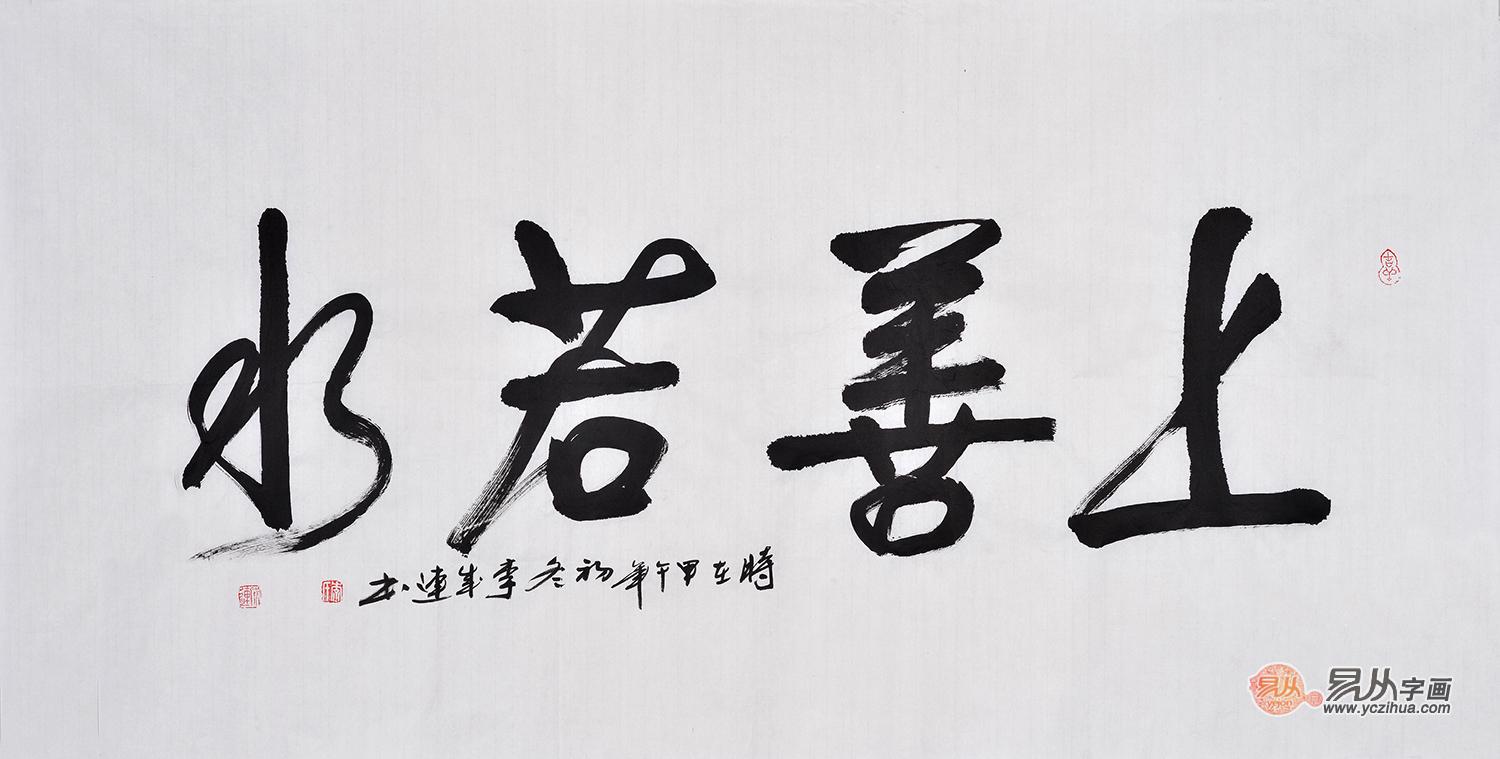 上善若水
時在甲午年初冬李成連书
易从
yigon
易从字画
www.yczihua.com